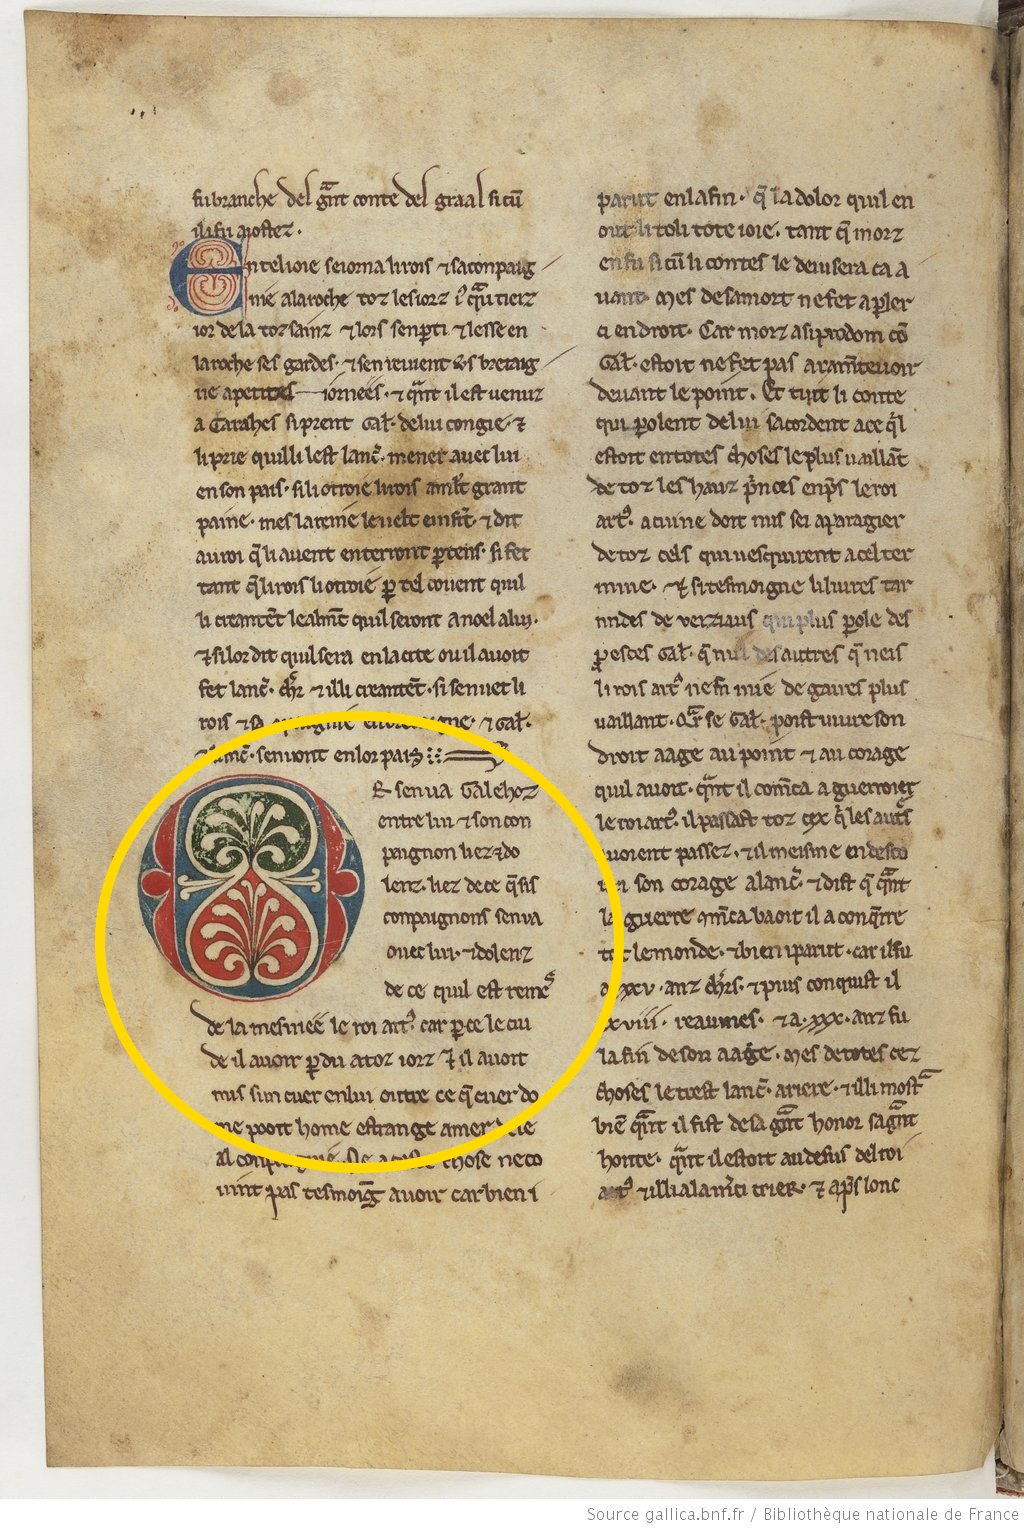 fu branche del gͣnt conte del graal si cū
il i fu aioster.
En tel ioie seiorna li rois ⁊ sa conpaig
nie a la roche toz les iorz
ior de la tozsainz ⁊ lors sen pti ⁊ lesse en
la roche ses gardes. ⁊ sen revient vͦs bretaig
ne a petites iornees. ⁊ qͣnt il est venuz
a Carahes si prent Gal'. de lui congie. ⁊
li prie quil li lest lanc̄. mener avec lui
en son païs. si li otroie li rois a mlt' grant
paine. mes la reine le velt einsi ⁊ dit
au roi q̄ li avent enterront p tens. si fet
tant q̄ li rois li otroie p tel covent quil
li creantēt leaumt̄ quil seront a noel a lui.
⁊ si lor dit quil sera en la cite ou il avoit
fet lanc̄. chr̄ ⁊ il li creantēt. si sen vet li
rois ⁊ sa conpaignie en bretaigne. ⁊ Gal'.
⁊ lanc̄. sen vont en lor païs
Or sen va Galehoz
entre lui ⁊ son con
paignon liez ⁊ do
lenz. liez de ce q̄ sis
conpaignons sen va
ovec lui. ⁊ dolenz
de ce quil est remes
de la mesniee le roi art⁹. car p ce le cui
de il avoir pdu a toz iorz ⁊ il avoit
mis sun cuer en lui outre ce q̄ cuer do
me pooit home estrange amer de le
al conpaignie. De a ceste chose ne co
vint pas tesmoig̅ avoir car bien i
parut en la fin. q̄ la dolor quil en
out li toli tote ioie. tant q̄ morz
en fu si cū li contes le devisera ca a
vant. Mes de sa mort ne fet a pler
ci en droit. Car morz a si prodom cō
Gal'. estoit ne fet pas a ramentevoir
devant le point. Et tuit li conte
qui polent de lui sacordent a ce q̄l
estoit en totes choses le plus vaillāt
de toz les hauz pͥnces enp̄s le roi
art⁹. a cui ne doit nus sei aparagier
de toz cels qui vesquirent a cel ter
mine. ⁊ si tesmoigne li livres tar
mides de verziaus qui plus pole des
proesces Gal'. q̄ nul des autres q̄ neis
li rois art⁹ ne fu mie de gaires plus
vaillant. Qr̄ se Gal'. poïst vivre son
droit aage au point ⁊ au corage
quil avoit. qͣnt il comēca a guerroier
le roi art⁹. il passast toz cex q̄ les autͥs
avoient passez. ⁊ il meisme en desco
vri son corage a lanc̄. ⁊ dist q̄ qͣnt
la guerre comēca baoit il a conq̄rre
tot le monde. ⁊ bien i parut. car il fu
a .xxv. anz chrs. ⁊ puis conquist il
xxviii. reaumes. ⁊ a .xxx. anz fu
la fin de son aage. Mes de totes cez
choses le trest lanc̄. ariere. ⁊ il li mostͣ
biē qͣnt il fist de sa gͣnt honor sa gͣnt
honte. qͣnt il estoit au desus del roi
art⁹ ⁊ il li ala mͨci crier. ⁊ ap̄s lonc
Source gallica.bnf.fr / Bibliothèque nationale de France